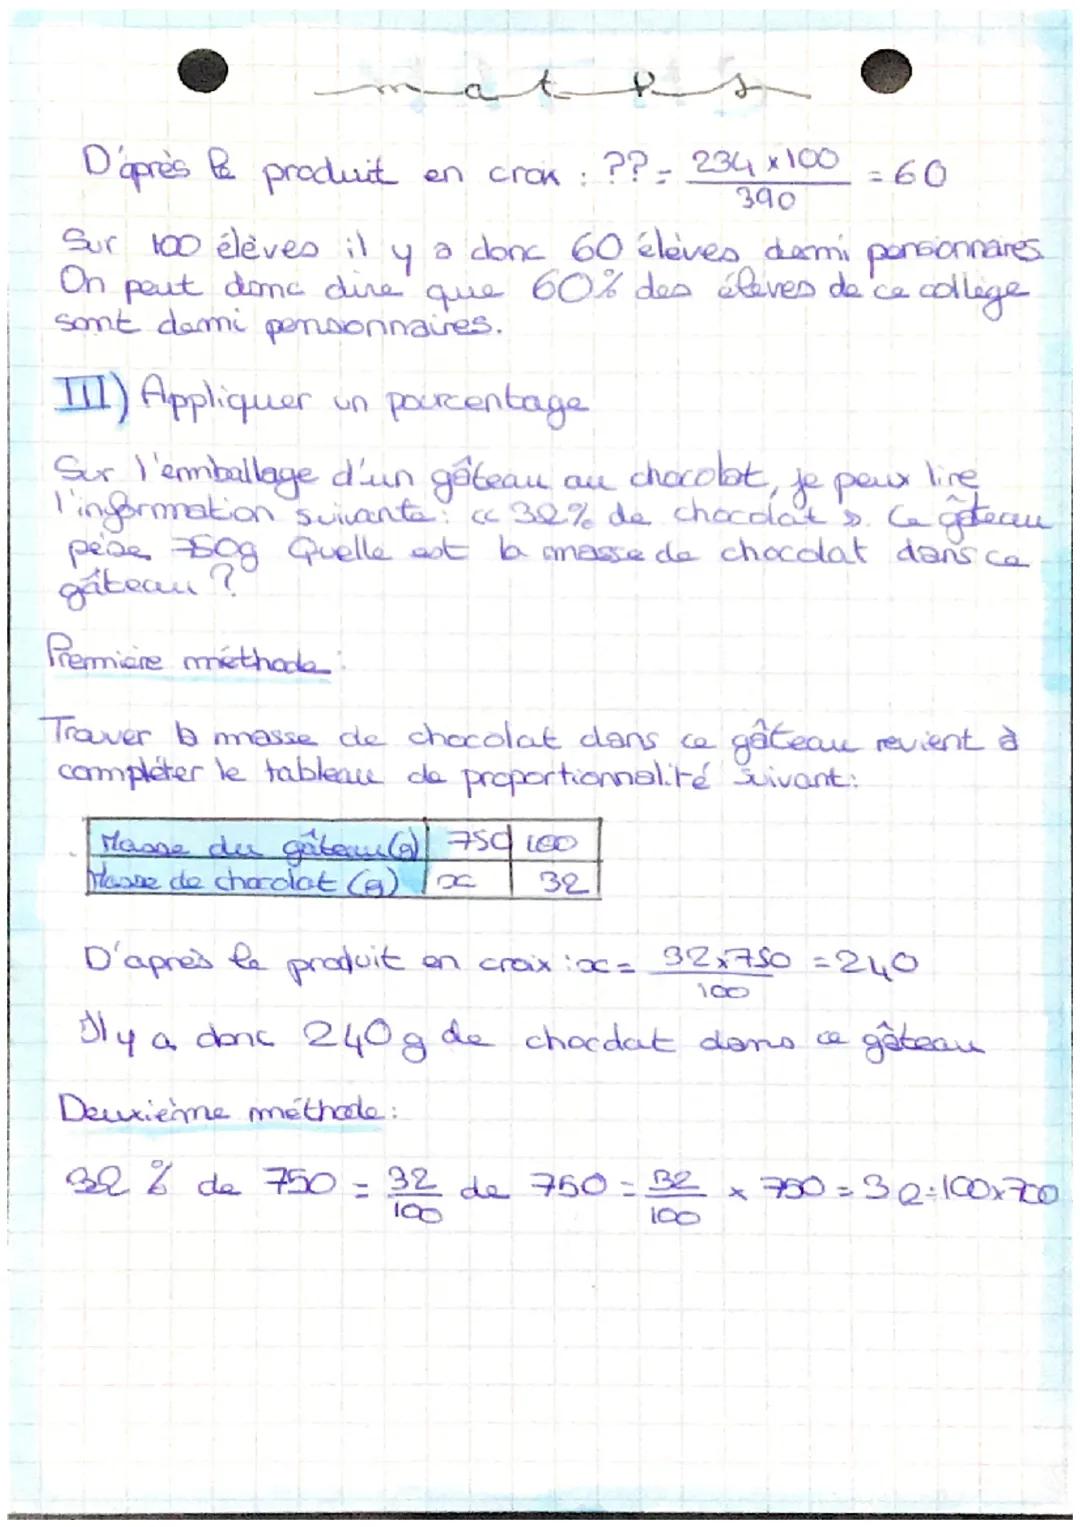 maths
D'après le produit en croix : ?? = 234 x 100 / 390 = 60
Sur 100 élèves il y a donc 60 élèves demi pensionnaires
On peut donc dire que 60% des élèves de ce collège
sont demi pensionnaires.
III) Appliquer un pourcentage
Sur l'emballage d'un gâteau au chocolat, je peux lire
l'information suivante : « 32% de chocolat ». Ce gâteau
pèse 750g Quelle est la masse de chocolat dans ce
gâteau ?
Première méthode :
Trouver la masse de chocolat dans ce gâteau revient à
compléter le tableau de proportionnalité suivant :
Masse du gâteau (g) 750 100
Masse de chocolat (g) x 32
D'après le produit en croix : x = 32 x 750 / 100 = 240
Il y a donc 240g de chocolat dans ce gâteau
Deuxième méthode :
32 % de 750 = 32/100 de 750 = 32/100 x 750 = 32÷100x700